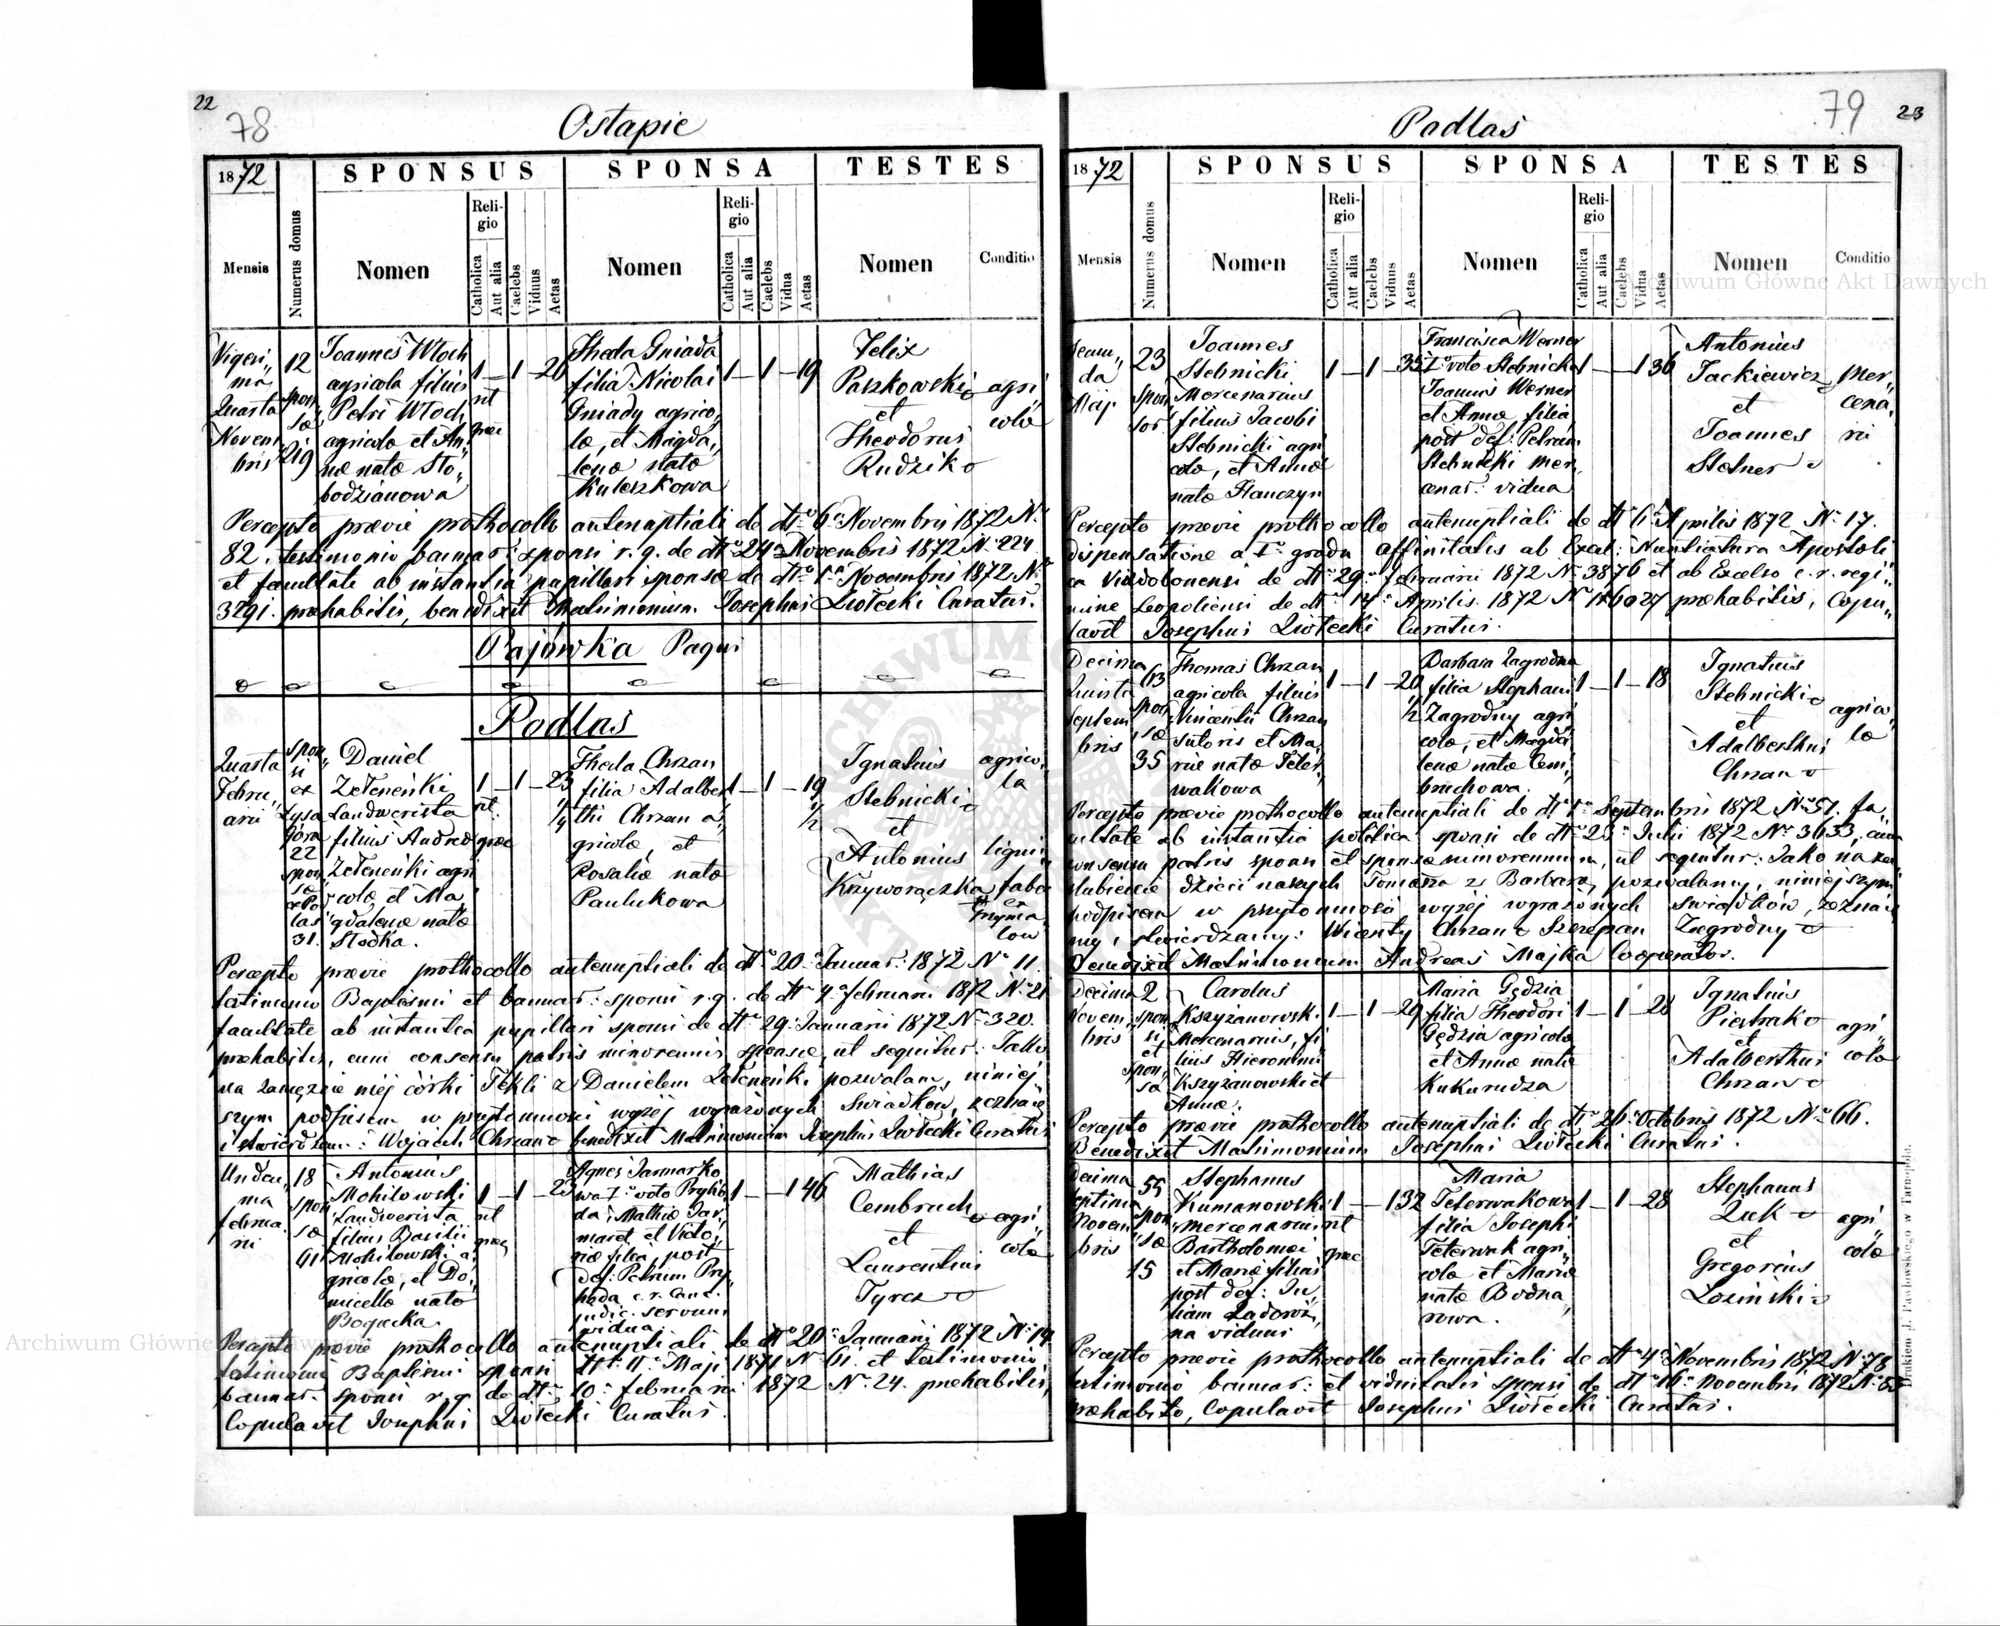 22
78
Ostapie
1872
SPONSUS
SPONSA
TESTES
Mensis
Numerus domus
Nomen
Religio
Catholica
Aut alia
Caelebs
Viduus
Aetas
Nomen
Religio
Catholica
Aut alia
Caelebs
Vidua
Aetas
Nomen
Conditio
Vigesi„
ma
Quarta
Novem„
bris
12
spon„
sæ
219
Joannes Włoch
agricola filius
Petri Włoch
agricolæ et An„
næ natæ Sło„
bodzianowa
1 – 1 – 26
rit
græc
Thecla Gniada
filia Nicolai
Gniady agrico„
læ, et Magda„
lenæ natæ
Kuleszkowa
1 – 1 – 19
Felix
Paszkowski
et
Theodorus
Rudzik
agri„
colæ
Percepto prævie prothocollo antenuptiali de dto 6a Novembris 1872 No
82. testimonio bannar: sponsi r. g. de dto 24a Novembris 1872 No 224
et facultate ab instantia pupillari sponsæ de dto 1a Novembris 1872 No
3291. præhabitis, benedixit Matrimonium Josephus Ziółecki Curatus.
Pajówka Pagus
Podlas
Quarta
Febru„
arii
spon„
si
ex
Łysa
góra
22
spon„
sæ
ex Pod
las
31.
Daniel
Zełeneńki
Landwerista
filius Andreæ
Zełeneńki agri
colæ et Ma„
gdalenæ natæ
Słodka.
1 – 1 – 23
rit.
græc
1/4
Thecla Chrzan
filia Adalber
thi Chrzan a„
gricolæ, et
Rosaliæ natæ
Paulukowa
1 – 1 – 19
1/2
Ignatius
Stebnicki
et
Antonius
Krzyworączka
agrico„
la
ligni„
faber
ex
Grzyma„
łow
Percepto prævie prothocollo antenuptiali de dto 20a Januar: 1872 No 11.
testimonio Baptismi et bannar: sponsi r. g. de dto 4a februarii 1872 No 21
facultate ab instantia pupillari sponsi de dto 29a Januarii 1872 No 320.
præhabitis, cum consensu patris minorennis sponsæ, ut sequitur: Jako
na zamęzcie méj córki Tekli z Danielem Zełeneńki pozwalam, niniej„
szym podpisem w przytomności wyżéj wyrażonych swiadków, zeznaie
i stwierdzam: Wojciech Chrzan benedixit Matrimonium Josephus Ziółecki Curatus
Undeci„
ma
februa„
rii
18
spon„
sæ
41
Antonius
Mohilowski
Landwerista
filius Basilii
Mohilowski a„
gricolæ, et Do„
micellæ natæ
Bogucka.
1 – 1 – 23
rit
græc
Agnes Jarmarko
wa 1o voto Przyby
da, Mathiæ Jar„
marek et Victo„
riæ filia, post
def: Petrum Przy„
byda c. r. Canc.
judic. servum
vidua
1 – – 1 46
Mathias
Cembruch
et
Laurentius
Tyrcz
agri„
colæ
Percepto prævie prothocollo antenuptiali de dto 20a Januarii 1872 No 14.
testimonio Baptismi sponsi dto 11a Maji 1871 No 61. et testimonio
bannar: sponsi r. g. de dto 10a februarii 1872 No 24. præhabitis,
Copulavit Josephus Ziółecki Curatus.
79
23
Podlas
1872
SPONSUS
SPONSA
TESTES
Mensis
Numerus domus
Nomen
Religio
Catholica
Aut alia
Caelebs
Viduus
Aetas
Nomen
Religio
Catholica
Aut alia
Caelebs
Vidua
Aetas
Nomen
Conditio
Secun„
da
Maji
23
spon„
sor
Joannes
Stebnicki
Mercenarius
filius Jacobi
Stebnicki agri
colæ, et Annæ
natæ Hanczyn
1 – 1 – 35
Francisca Werner
1o voto Stebnicka
Joannis Werner
et Annæ filia
post def: Petrum
Stebnicki mer„
cenar: vidua
1 – – 1 36
Antonius
Jackiewicz
et
Joannes
Stelner
Mer„
cena„
rii
Percepto prævie prothocollo antenuptiali de dto 6a Aprilis 1872 No 17.
dispensatione a Io gradu affinitatis ab Excel: Nuntiatura Apostoli„
ca Vindobonensi de dto 29a februarii 1872 No 3876 et ab Excelso c. r. regi„
mine Leopoliensi de dto 14a Aprilis 1872 No 16027 præhabitis, Copu„
lavit Josephus Ziółecki Curatus.
Decima
Quinta
Septem
bris
63
spon
sæ
35
Thomas Chrzan
agricola filius
Vincentii Chrzan
sutoris et Ma„
riæ natæ Teter„
wakowa
1 – 1 – 20
1/2
Barbara Zagrodna
filia Stephani
Zagrodny agri
colæ, et Magda
lenæ natæ Cem„
bruchowa.
1 – 1 – 18
Ignatius
Stebnicki
et
Adalberthus
Chrzan
agrico„
læ
Percepto prævie prothocollo antenuptiali de dto 1a Septembris 1872 No 51. fa„
cultate ab instantia politica sponsi de dto 25a Julii 1872 No 3633, cum
consensu patris sponsi et sponsæ minorennium, ut sequitur: Jako na za„
slubiecie dzieci naszych Tomasza z Barbarą, pozwalamy, niniejszym
podpisem w przytomności wyżéj wyrażonych świadków, zeznaje„
my i stwierdzamy: Wicenty Chrzan Szczepan Zagrodny
Benedixit Matrimonium Andreas Majka Cooperator.
Decima
Novem„
bris
2
spon„
si
et
spon„
sæ
Carolus
Krzyżanowski
Mercenarius, fi
lius Hieronimi
Krzyżanowski et
Annæ.
1 – 1 – 29
Maria Gędzia
filia Theodori
Gędzia agricolæ
et Annæ natæ
Kukurudza
1 – 1 – 28
Ignatius
Pietrak
et
Adalberthus
Chrzan
agri„
colæ
Percepto prævie prothocollo antenuptiali de dto 26a Octobris 1872 No 66.
Benedixit Matrimonium Josephus Ziółecki Curatus.
Decima
Septima
Novem
bris
55
spon„
sæ
15
Stephanus
Kumanowski
mercenarius
Bartholomei
et Mariæ filius
post def: Ju„
liam Zadoroż„
na viduus
1 – – 1 32
rit
græc
Maria
Teterwakowa
filia Josephi
Teterwak agri„
colæ et Mariæ
natæ Bodna„
rowa.
1 – 1 – 28
Stephanus
Żuk
et
Gregorius
Łozinski
agri„
colæ
Percepto prævie prothocollo antenuptiali de dto 4a Novembris 1872 No 78
testimonio bannar: et viduitatis sponsi de dto 16a Novembris 1872 No 83
præhabito, Copulavit Josephus Ziółecki Curatus.
Drukiem J. Pawłowskiego w Tarnopolu.
Archiwum Główne Akt Dawnych
Archiwum Główne Akt Dawnych